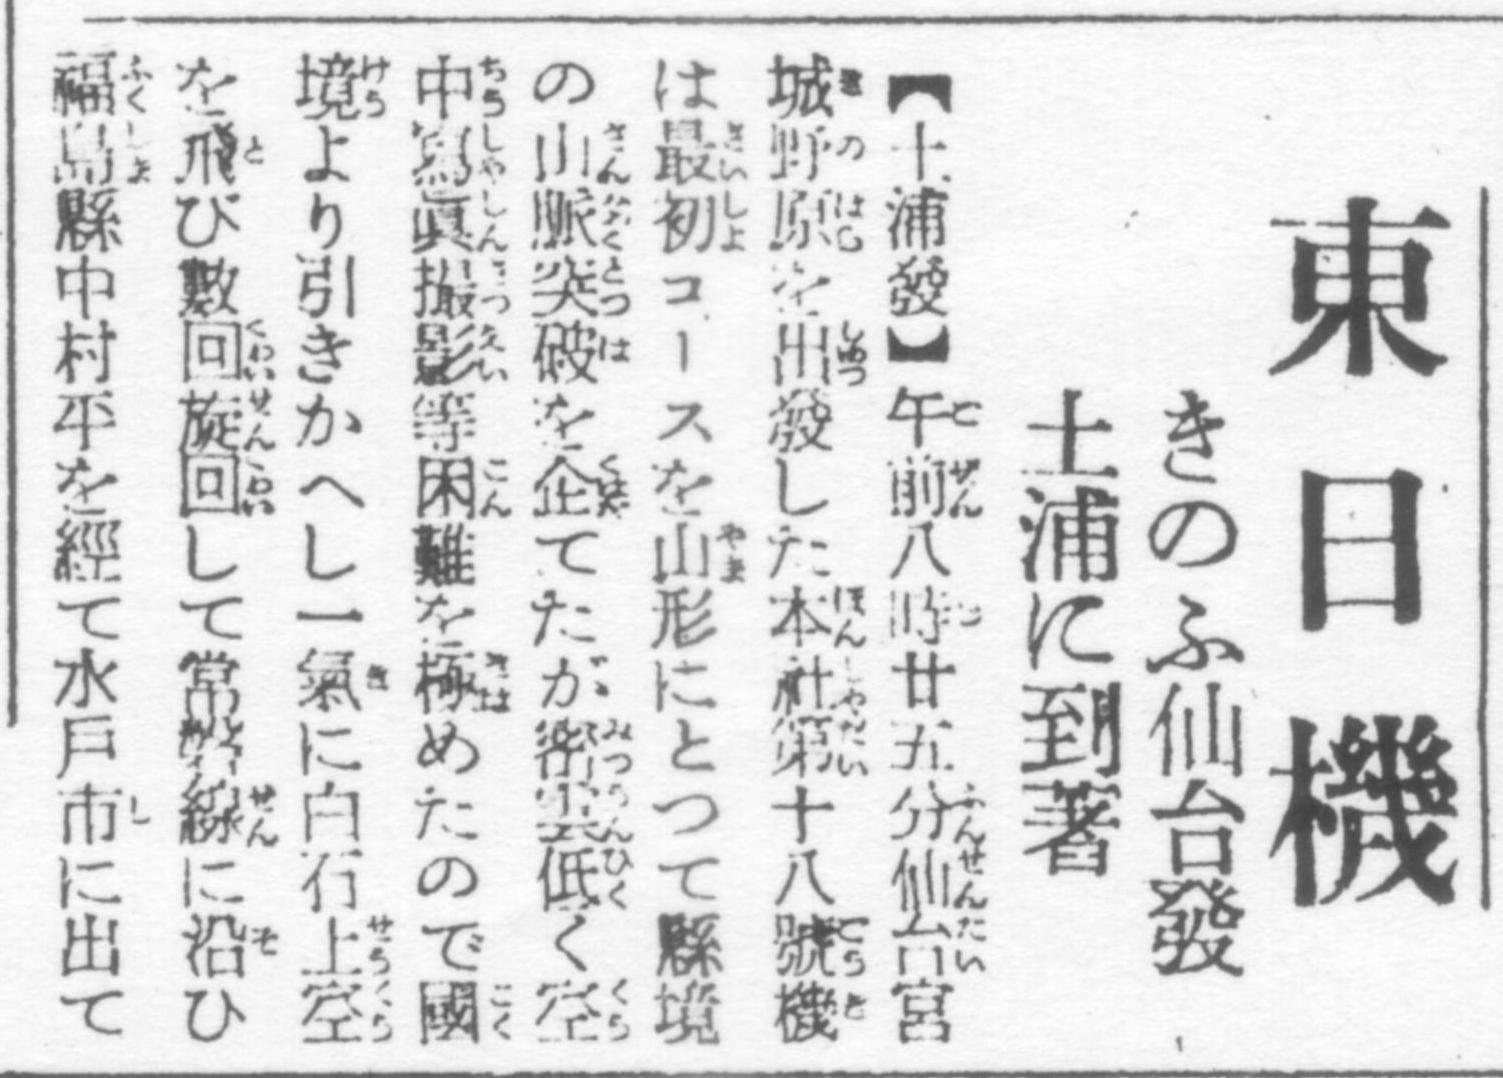 東日機
きのふ仙台發
土浦に到著
【土浦發】午前八時廿五分仙台宮
城野原を出發した本社第十八號機
は最初コースを山形にとつて縣境
の山脈突破を企てたが密雲低く空
中寫眞撮影等困難を極めたので國
境より引きかへし一氣に白石上空
を飛び數回旋回して常磐線に沿ひ
福島縣中村平を經て水戸市に出て